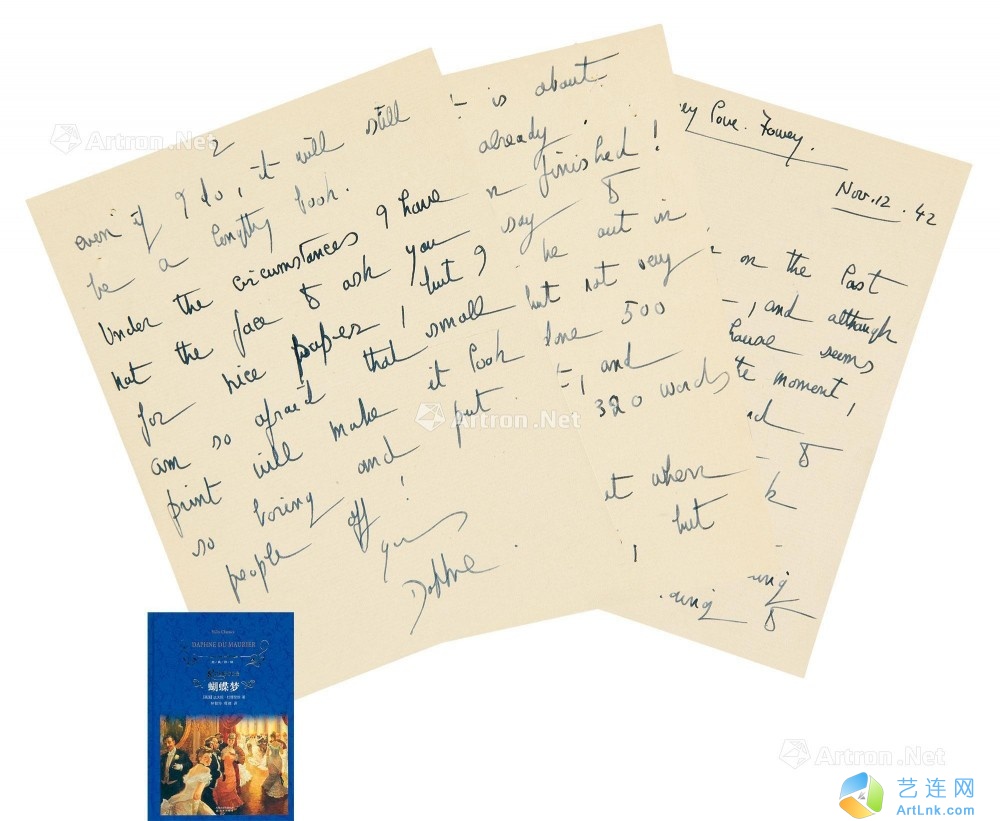 2
even if I do, it will still
be a lengthy book.
Under the circumstances I have
not the face to ask you
for nice paper, but I
am so afraid that small
print will make it look
so boring and put
people off!
Daphne.
is about
already.
finished!
say to
be out in
but not very
done 500
, and
320 words
where
but
Cove. Fowey.
Nov. 12. 42
on the last
, and although
house seems
moment,
to
DAPHNE DU MAURIER
蝴蝶梦
Artron.Net
Artron.Net
Artron.Net
Artron.Net
艺连网
ArtLnk.com